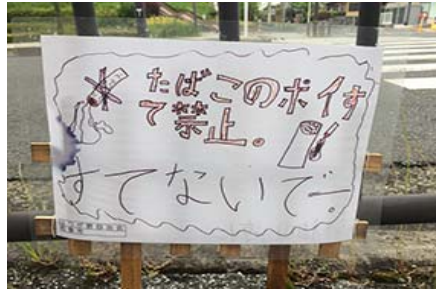 たばこのポイす
て禁止。
すてないでー。